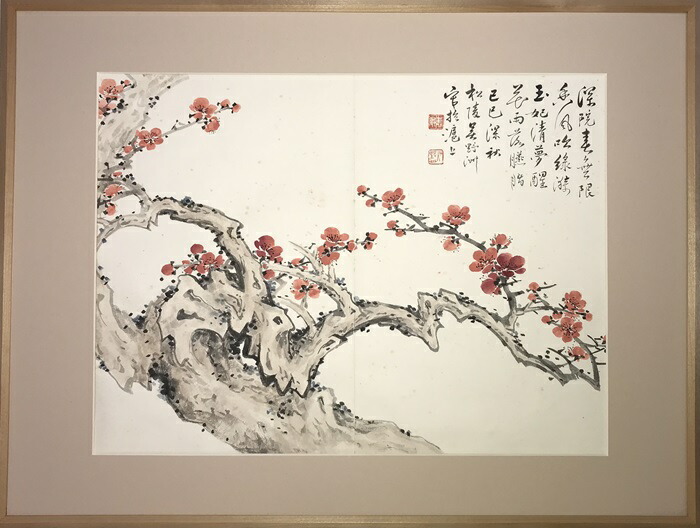 深院春無限
香風吹綠漪
玉妃清夢醒
花雨落臙脂
己巳深秋
松陵吳野洲
寫於滬上